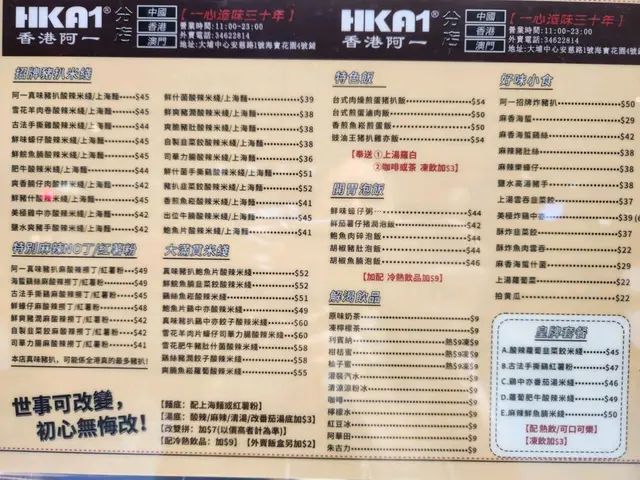 HKA1
香港阿一
分店
中國
香港
澳門
【一心造味三十年】
營業時間:11:00-23:00
外賣電話:34622814
地址:大埔中心安慈路1號海寶花園4號鋪
HKA1
香港阿一
分店
中國
香港
澳門
【一心造味三十年】
營業時間:11:00-23:00
外賣電話:34622814
地址:大埔中心安慈路1號海寶花園4號鋪
招牌豬扒米綫
阿一真味豬扒酸辣米綫/上海麵 $45
雪花羊肉卷酸辣米綫/上海麵 $42
古法手撕雞酸辣米綫/上海麵 $44
鮮味蠔仔酸辣米綫/上海麵 $42
鮮鯇魚腩酸辣米綫/上海麵 $45
肥牛酸辣米綫/上海麵 $44
爽香腩仔肉酸辣米綫/上海麵 $42
鮮豬什酸辣米綫/上海麵 $45
美極雞中亦酸辣米綫/上海麵 $42
鹽水爽豬手酸辣米綫/上海麵 $42
鮮什菌酸辣米綫/上海麵 $39
鮮爽豬潤酸辣米綫/上海麵 $38
爽脆豬肚酸辣米綫/上海麵 $38
自製韭菜餃酸辣米綫/上海麵 $38
司華力腸酸辣米綫/上海麵 $36
鮮什菌手撕雞酸辣米綫 $51
豬扒韭菜餃酸辣米綫 $52
香煎魚崧酸辣米綫 $41
出位牛腩酸辣米綫 $45
鮑魚片酸辣米綫 $41
特別麻辣NO丁/紅薯粉
阿一真味豬扒麻酸辣撈丁/紅薯粉 $49
海蜇雞絲麻酸辣撈丁/紅薯粉 $49
古法手撕雞麻酸辣撈丁/紅薯粉 $45
鮮蠔仔麻酸辣撈丁/紅薯粉 $48
鮮爽豬潤麻酸辣撈丁/紅薯粉 $42
自製韭菜餃麻酸辣撈丁/紅薯粉 $42
司華力腸麻酸辣撈丁/紅薯粉 $41
本店真味豬扒，可能係全港真的最多豬扒！
大滿貫米綫
真味豬扒鮑魚片酸辣米綫 $52
鮮鯇魚腩韭菜餃酸辣米綫 $52
雞絲魚崧酸辣米綫 $51
鮑魚片雞中亦酸辣米綫 $49
真味豬扒雞中亦餃子酸辣米綫 $60
雪花羊肉片蠔仔司華力腸酸辣米綫 $60
雪花羊肉肥牛什菌酸辣米綫 $58
雞絲豬潤餃子酸辣米綫 $58
爽腩魚崧蘿蔔酸辣米綫 $55
世事可改變，
初心無悔改！
【麵底：配上海麵或紅薯粉】
【湯底：酸辣/麻辣/清湯/改番茄湯底加$3】
【改雙拼：加$7(以價高者計為準)】
【配冷熱飲品：加$9】【外賣飯盒另加$2】
特色飯
台式肉燥煎蛋豬扒飯 $54
台式煎蛋滷肉飯 $50
香煎魚崧煎蛋飯 $50
豉油王豬扒雞亦飯 $54
【奉送 ①上湯蘿白
②咖啡或茶 凍飲加$3】
開胃泡飯
鮮味蠔仔粥 $44
鮮茄薯仔豬潤泡飯 $42
鮑魚肉碎泡飯 $44
胡椒豬肚泡飯 $44
胡椒魚腩泡飯 $46
【加配 冷熱飲品加$9】
解渴飲品
原味奶茶 $9
凍檸檬茶 $9
利賓納 熱$9凍$9
柑桔蜜 熱$9凍$9
柚子蜜 熱$9凍$9
灌裝汽水 $9
清涼涼粉冰 $9
咖啡 $9
檸檬水 $9
紅豆冰 $9
阿華田 $9
朱古力 $9
好味小食
阿一招牌炸豬扒 $50
麻香海蜇 $29
麻香海蜇雞絲 $42
麻辣豬肚絲 $38
麻辣樂蠔仔 $38
鹽水高湯豬手 $38
上湯雲吞韭菜餃 $37
美極炸雞中亦 $39
酥炸雲吞韭菜餃 $37
酥炸魚肉雲吞 $22
麻香海蜇什菌 $29
上湯蘿蔔菜 $22
拍黃瓜 $22
皇牌套餐
A.酸辣蘿蔔韭菜餃米綫 $45
B.古法手撕雞紅薯粉 $47
C.雞中亦番茄湯米綫 $46
D.蘿蔔肥牛酸辣米綫 $49
E.麻辣鮮魚腩米綫 $50
【配 熱飲/可口可樂】
【凍飲加$3】